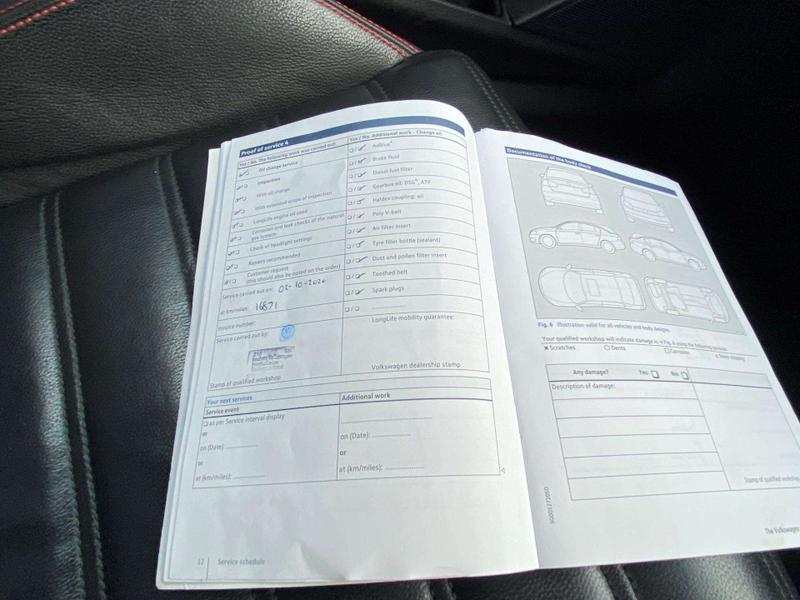 Proof of service 4
Yes / No The following work was carried out:
Oil change service
Inspection
With oil change
With extended scope of inspection
LongLife engine oil used
Corrosion and leak checks of the natural
gas system
Check of headlight settings
Repairs recommended
Customer request
(this should also be noted on the order)
Service carried out on: 02-10-2020
at km/miles: 16871
Invoice number:
Service carried out by:
Stamp of qualified workshop
Yes / No Additional work – Change oil
AdBlue®
Brake fluid
Diesel fuel filter
Gearbox oil: DSG®, ATF
Haldex coupling: oil
Poly V-belt
Air filter insert
Tyre filler bottle (sealant)
Dust and pollen filter insert
Toothed belt
Spark plugs
LongLife mobility guarantee:
Volkswagen dealership stamp
Your next services
Service event
as per Service interval display
or
on (Date):
or
at (km/miles):
Additional work
on (Date):
or
at (km/miles):
12 Service schedule
Documentation of the body check
Fig. 6 Illustration valid for all vehicles and body designs.
Your qualified workshop will indicate damage in ⇒ Fig. 6 using the following symbols:
× Scratches ○ Dents □ Corrosion Stone chipping
Any damage? Yes No
Description of damage:
Stamp of qualified workshop
The Volkswagen